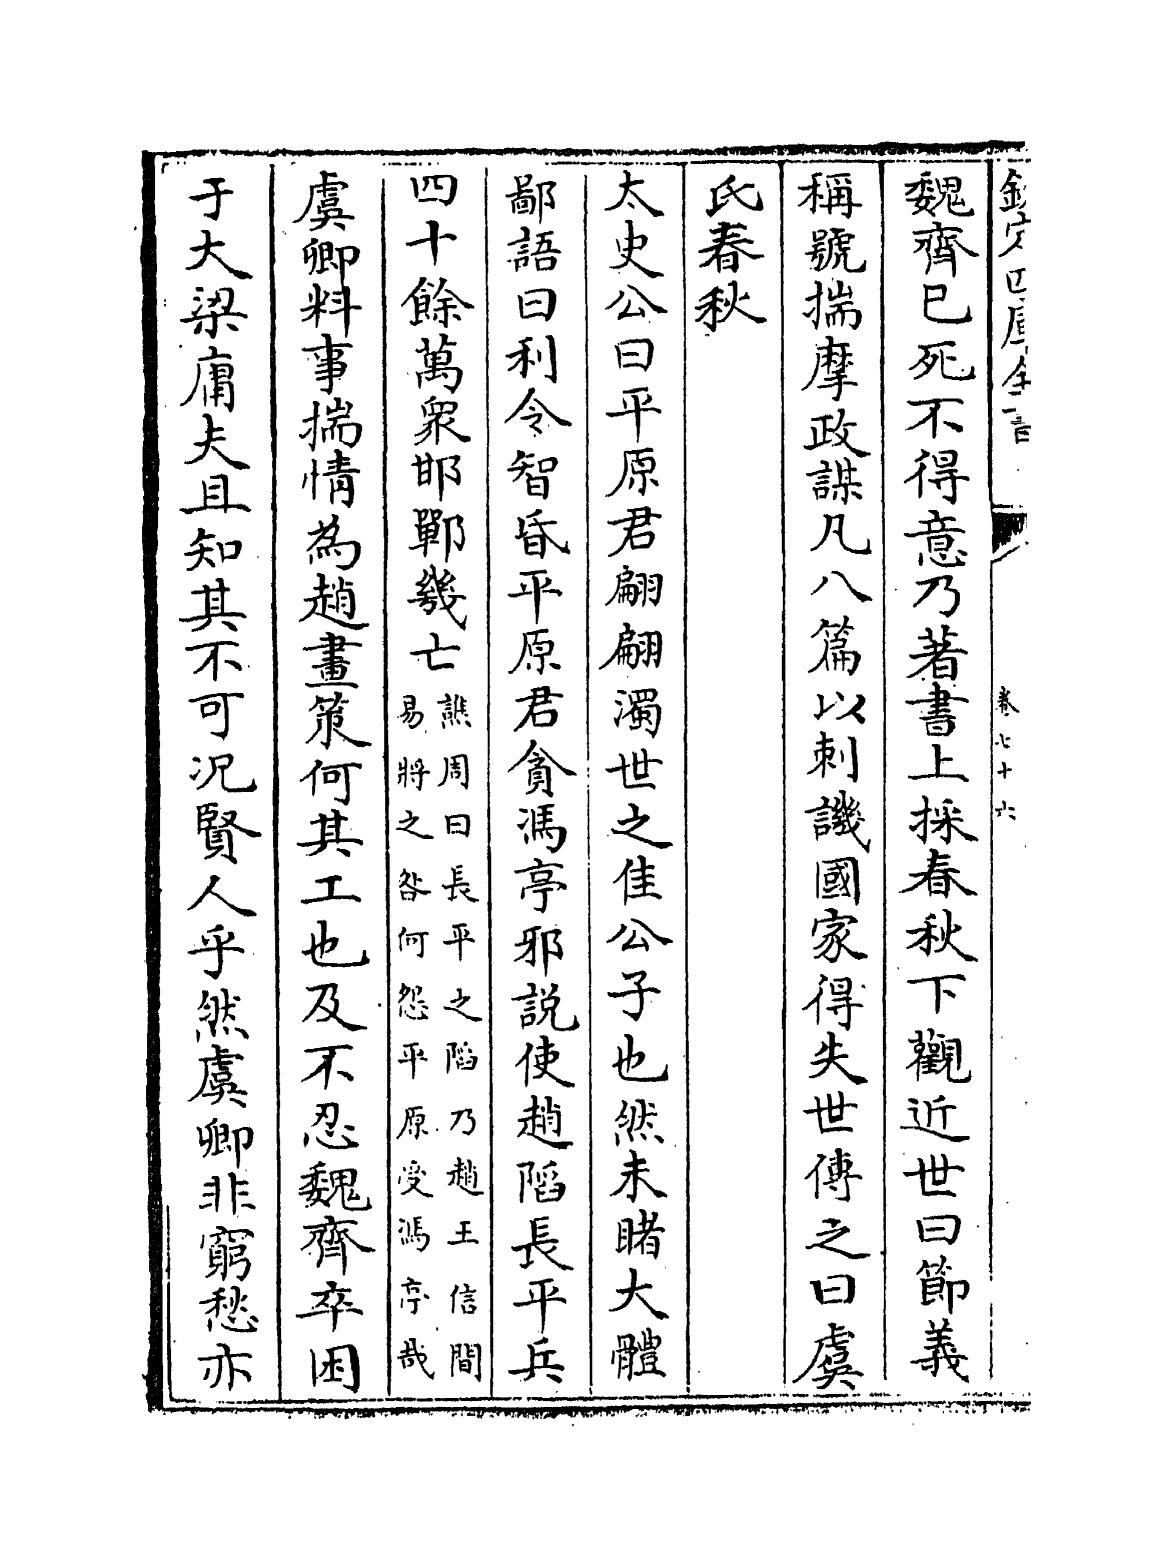 欽定四庫全書
卷七十六
魏齊已死不得意乃著書上採春秋下觀近世曰節義
稱號揣摩政謀凡八篇以刺譏國家得失世傳之曰虞
氏春秋
太史公曰平原君翩翩濁世之佳公子也然未睹大體
鄙語曰利令智昏平原君貪馮亭邪說使趙陷長平兵
四十餘萬衆邯鄲幾亡
譙周曰長平之陷乃趙王信間
易將之咎何怨平原受馮亭哉
虞卿料事揣情為趙畫策何其工也及不忍魏齊卒困
于大梁庸夫且知其不可況賢人乎然虞卿非窮愁亦